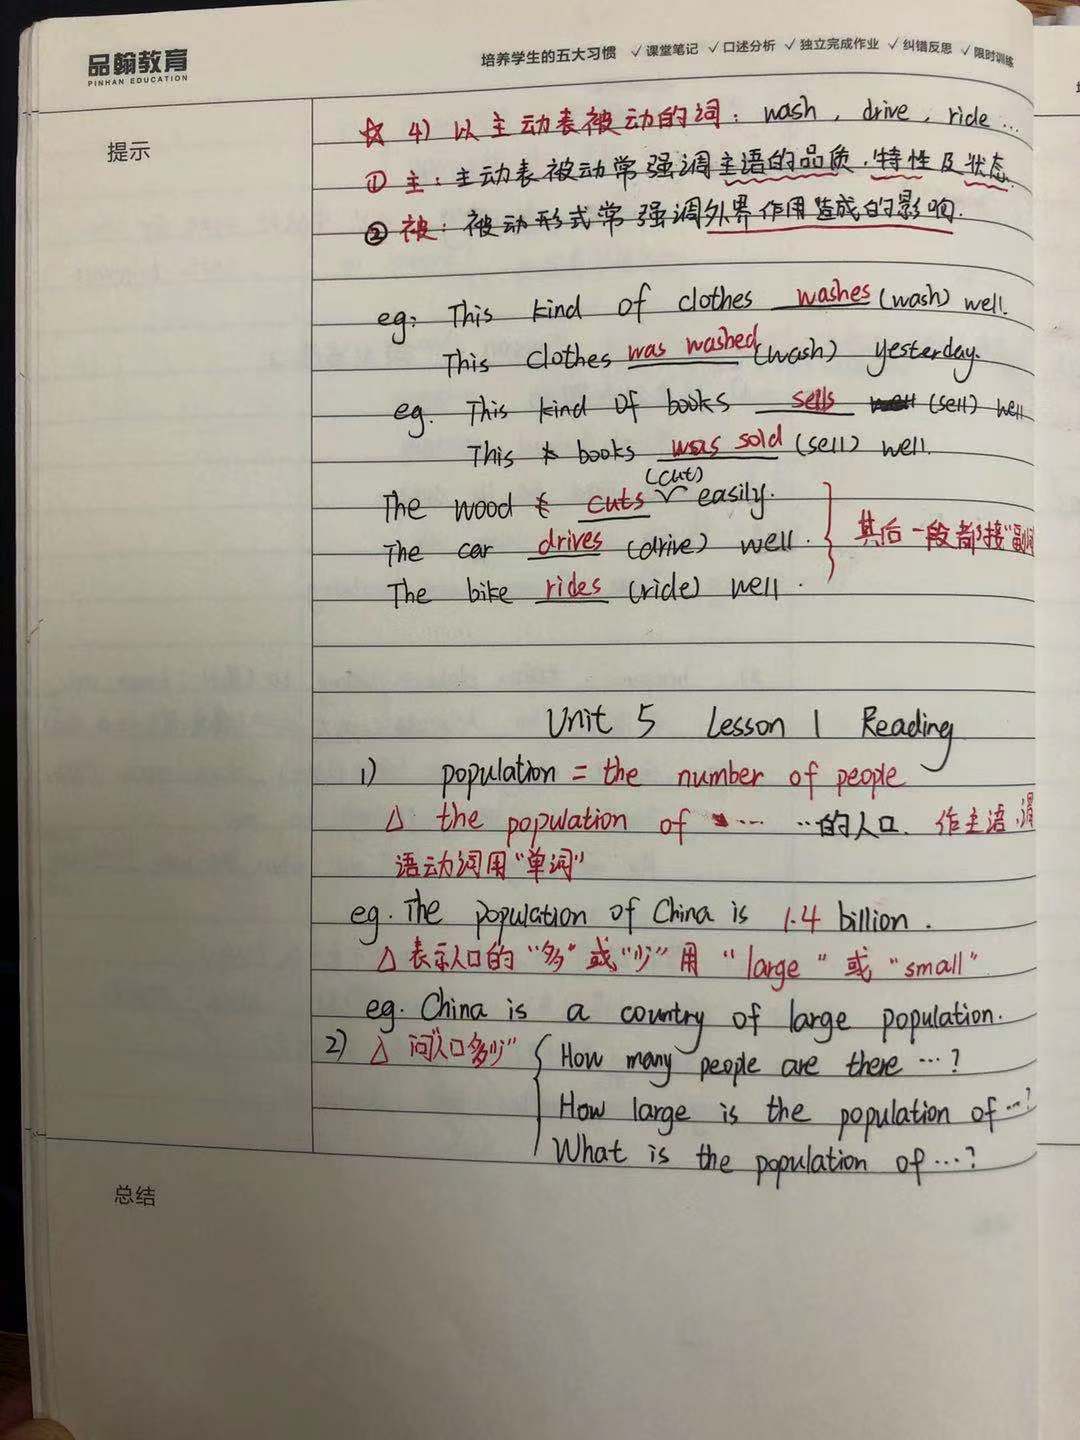 品翰教育
PINHAN EDUCATION
培养学生的五大习惯 ✓课堂笔记 ✓口述分析 ✓独立完成作业 ✓纠错反思 ✓限时训练
提示
☆ 4) 以主动表被动的词: wash, drive, ride...
① 主: 主动表被动常强调主语的品质、特性及状态.
② 被: 被动形式常强调外界作用造成的影响.
eg: This kind of clothes washes (wash) well.
This clothes was washed (wash) yesterday.
eg. This kind of books sells (sell) well
This books was sold (sell) well.
The wood cuts (cut) easily.
The car drives (drive) well.
其后一段都接"副词
The bike rides (ride) well.
Unit 5 Lesson 1 Reading
1) population = the number of people
△ the population of ... ...的人口. 作主语,谓
语动词用"单词"
eg. The population of China is 1.4 billion.
△ 表示人口的"多"或"少"用 "large" 或 "small"
eg. China is a country of large population.
2) △ 问"人口多少" How many people are there ...?
How large is the population of ...?
What is the population of ...?
总结